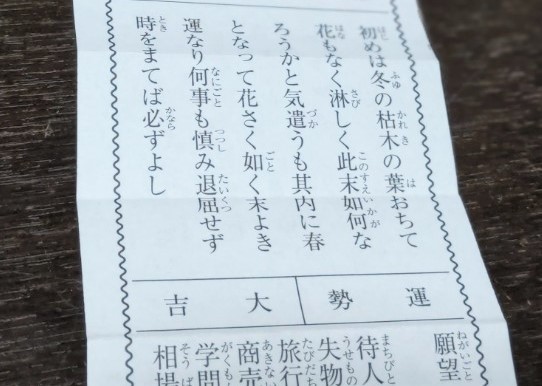 初めは冬の枯木の葉おちて
花もなく淋しく此末如何な
ろうかと気遣うも其内に春
となって花さく如く末よき
運なり何事も慎み退屈せず
時をまてば必ずよし
運勢
大吉
願望
待人
失物
旅行
商売
学問
相場